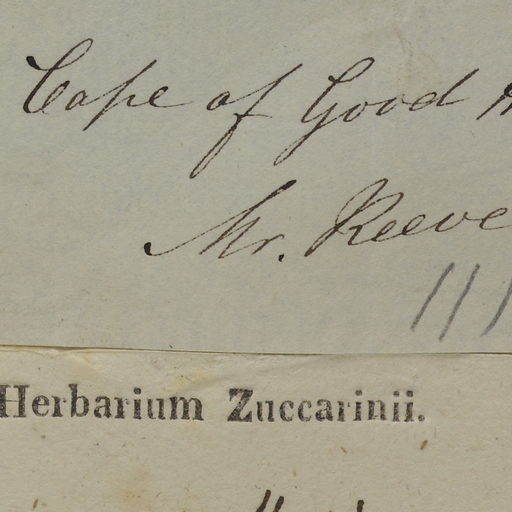 Cape of Good
Mr. Reeve
111
Herbarium Zuccarinii.